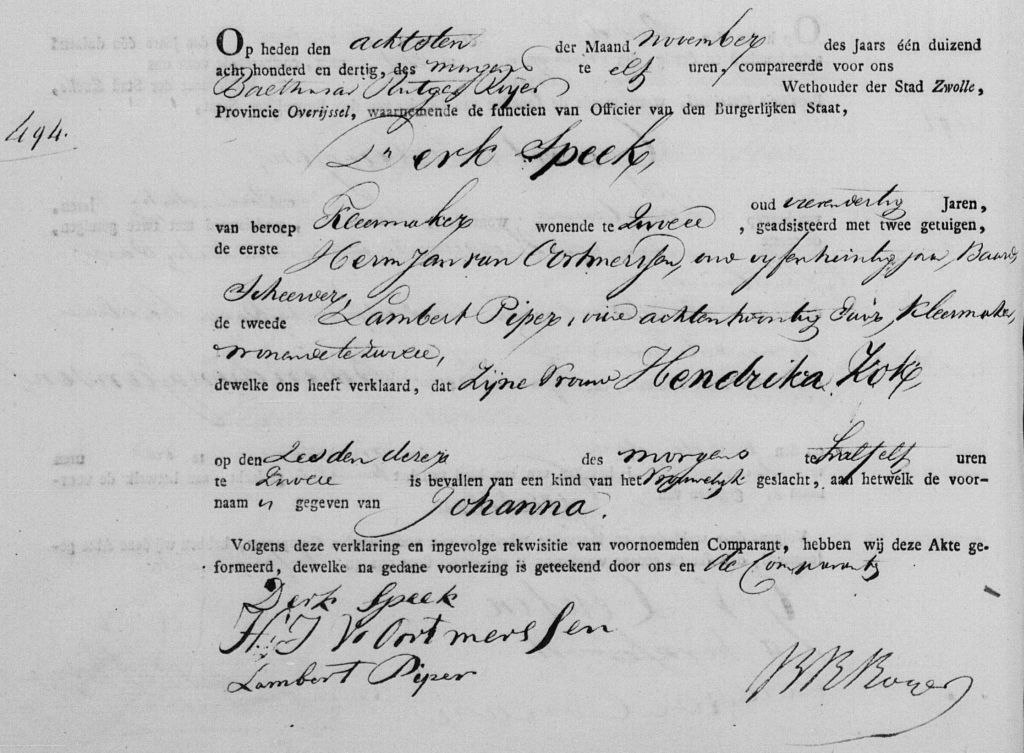 Op heden den achtsten der Maand November des Jaars één duizend
acht honderd en dertig, des morgens te elf uren, compareerde voor ons
Balthasar Rutger Wethouder der Stad Zwolle,
Provincie Overijssel, waarnemende de functien van Officier van den Burgerlijken Staat,
494.
Derk Speek,
oud vierendertig Jaren,
van beroep Kleermaker wonende te Zwolle, geadsisteerd met twee getuigen,
de eerste Herm Jan van Oortmerssen, oud vyfentwintig jaar, Baard
Scheerder,
de tweede Lambert Piper, oud achtentwintig Jaar, Kleermaker,
wonende te Zwolle,
dewelke ons heeft verklaard, dat Zijne Vrouw Hendrika Kok,
op den Zesden dezer des morgens te half elf uren
te Zwolle is bevallen van een kind van het Vrouwelijk geslacht, aan hetwelk de voor-
naam is gegeven van Johanna.
Volgens deze verklaring en ingevolge rekwisitie van voornoemden Comparant, hebben wij deze Akte ge-
formeerd, dewelke na gedane voorlezing is geteekend door ons en de Comparanten
Derk Speek
H J V Oortmerssen
Lambert Piper